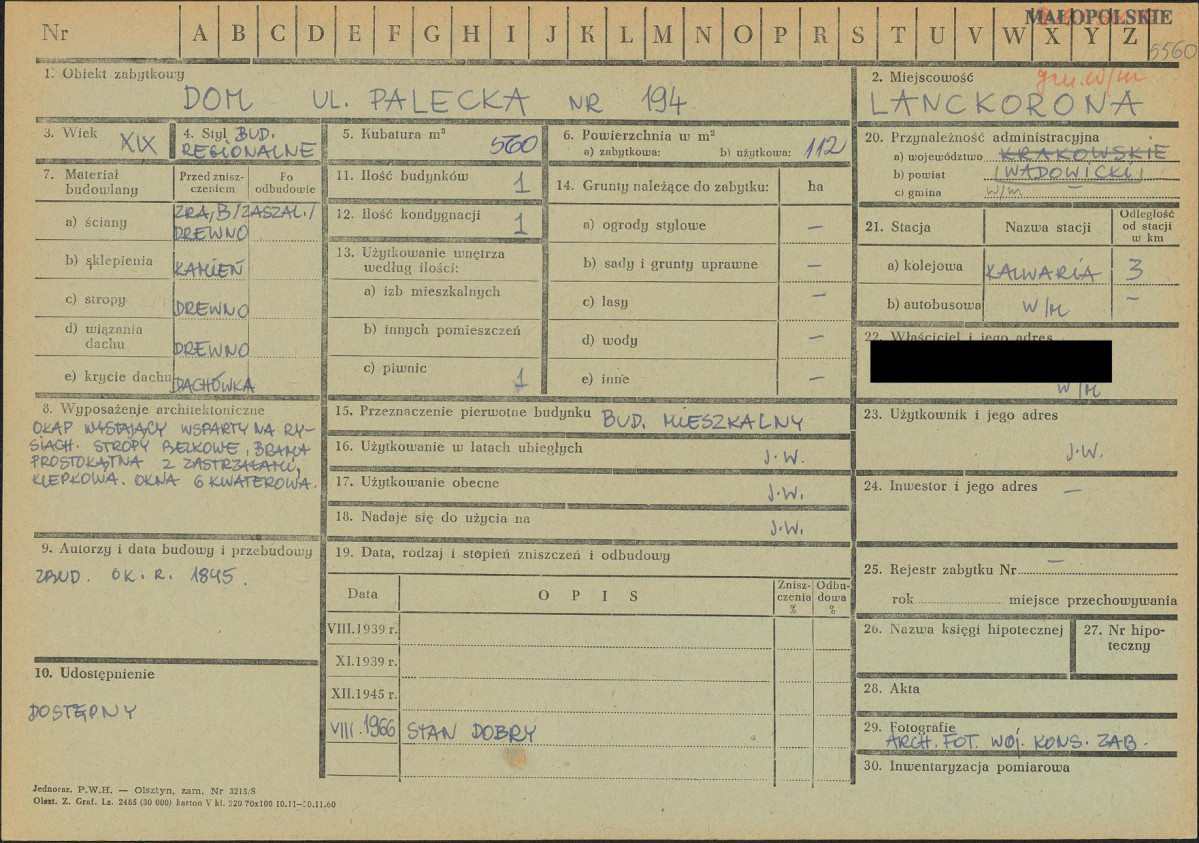 MAŁOPOLSKIE
Nr A B C D E F G H I J K L M N O P R S T U V W X Y Z
5560
1. Obiekt zabytkowy
DOM UL. PALECKA NR 194
2. Miejscowość
gm. w/m
LANCKORONA
3. Wiek XIX
4. Styl BUD.
REGIONALNE
5. Kubatura m³
560
6. Powierzchnia w m²
a) zabytkowa: b) użytkowa: 112
20. Przynależność administracyjna
a) województwo KRAKOWSKIE
b) powiat (WADOWICKI)
c) gmina w/m —
7. Materiał
budowlany
Przed znisz-
czeniem
Po
odbudowie
a) ściany
ZRĄB /ZASZAL./
DREWNO
b) sklepienia KAMIEŃ
c) stropy DREWNO
d) wiązania
dachu DREWNO
e) krycie dachu DACHÓWKA
11. Ilość budynków 1
12. Ilość kondygnacji 1
13. Użytkowanie wnętrza
według ilości:
a) izb mieszkalnych
b) innych pomieszczeń
c) piwnic 1
14. Grunty należące do zabytku: ha
a) ogrody stylowe —
b) sady i grunty uprawne —
c) lasy —
d) wody —
e) inne —
21. Stacja Nazwa stacji
Odległość
od stacji
w km
a) kolejowa KALWARIA 3
b) autobusowa W/M —
22. Właściciel i jego adres
W/M
8. Wyposażenie architektoniczne
OKAP WYSTAJĄCY WSPARTY NA RY-
SIACH. STROPY BELKOWE, BRAMA
PROSTOKĄTNA Z ZASTRZAŁAMI,
KLEPKOWA. OKNA 6 KWATEROWA.
15. Przeznaczenie pierwotne budynku BUD. MIESZKALNY
16. Użytkowanie w latach ubiegłych J.W.
17. Użytkowanie obecne J.W.
18. Nadaje się do użycia na J.W.
23. Użytkownik i jego adres
J.W.
24. Inwestor i jego adres —
9. Autorzy i data budowy i przebudowy
ZBUD. OK. R. 1845.
19. Data, rodzaj i stopień zniszczeń i odbudowy
Data OPIS
Znisz-
czenia
%
Odbu-
dowa
%
VIII.1939 r.
XI.1939 r.
XII.1945 r.
VIII.1966 STAN DOBRY
25. Rejestr zabytku Nr —
rok miejsce przechowywania
26. Nazwa księgi hipotecznej
27. Nr hipo-
teczny
10. Udostępnienie
DOSTĘPNY
28. Akta
29. Fotografie
ARCH. FOT. WOJ. KONS. ZAB.
30. Inwentaryzacja pomiarowa
Jednoraz. P.W.H. — Olsztyn, zam. Nr 3215/S
Olszt. Z. Graf. Lz. 2485 (30 000) karton V kl. 220 70x100 10.11—30.11.60